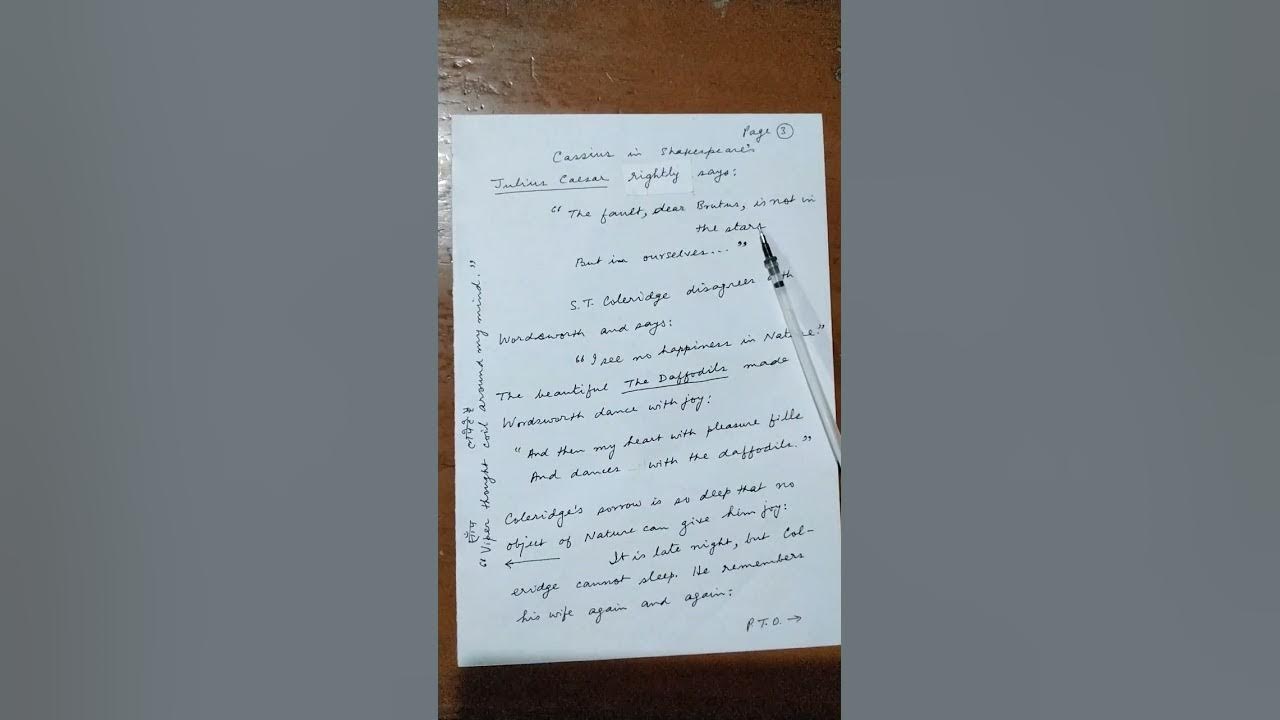 Page 3
Cassius in Shakespeare's
Julius Caesar rightly says:
" The fault, dear Brutus, is not in
the stars
But in ourselves... "
S.T. Coleridge disagrees with
Wordsworth and says:
" I see no happiness in Nature."
The beautiful The Daffodils made
Wordsworth dance with joy:
" And then my heart with pleasure fills
And dances with the daffodils."
Coleridge's sorrow is so deep that no
object of Nature can give him joy:
It is late night, but Col-
eridge cannot sleep. He remembers
his wife again and again:
P.T.O. →
साँप
" Viper thought coil around my mind. "